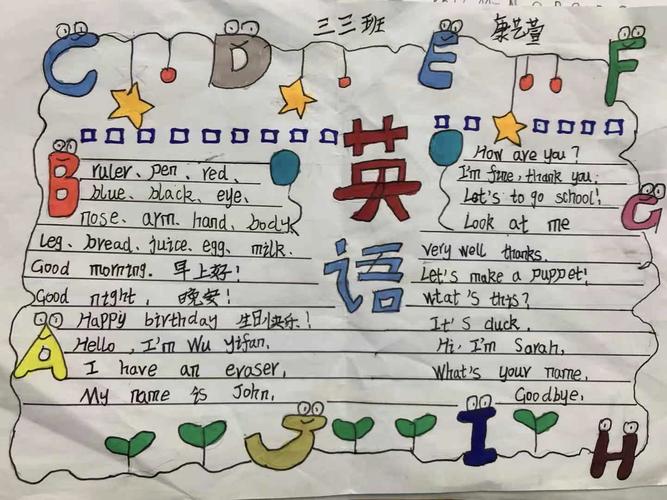 三三班 康艺萱
C D E F
英语
B
ruler、pen、red、
blue、black、eye、
nose、arm、hand、body、
Leg、bread、juice、egg、milk.
Good morning. 早上好!
Good night, 晚安!
A
Happy birthday 生日快乐!
Hello, I'm Wu Yifan,
I have an eraser,
My name is John,
How are you?
I'm fine, thank you.
Let's to go school!
Look at me
G
very well thanks.
Let's make a puppet!
What's this?
It's duck.
Hi, I'm Sarah,
What's your name,
Goodbye,
J I H